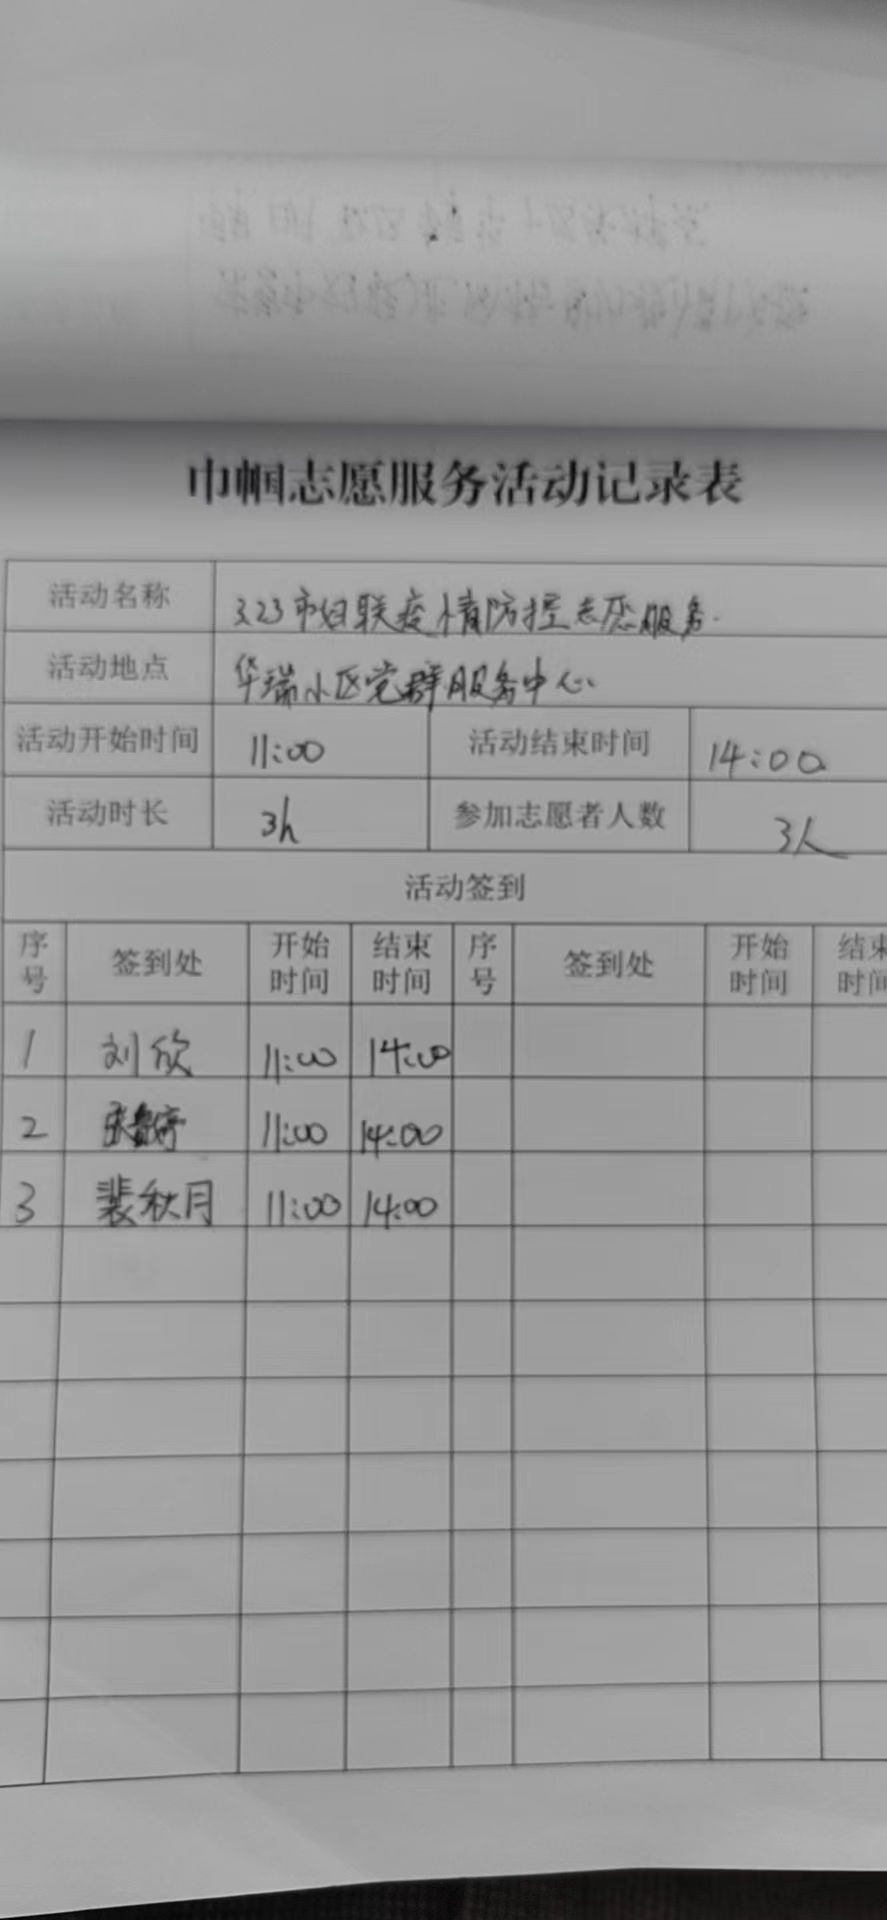 巾帼志愿服务活动记录表
活动名称 3.23市妇联疫情防控志愿服务.
活动地点 华瑞小区党群服务中心
活动开始时间 11:00 活动结束时间 14:00
活动时长 3h 参加志愿者人数 3人
活动签到
序号 签到处 开始时间 结束时间 序号 签到处 开始时间 结束时间
1 刘欣 11:00 14:00
2 11:00 14:00
3 裴秋月 11:00 14:00